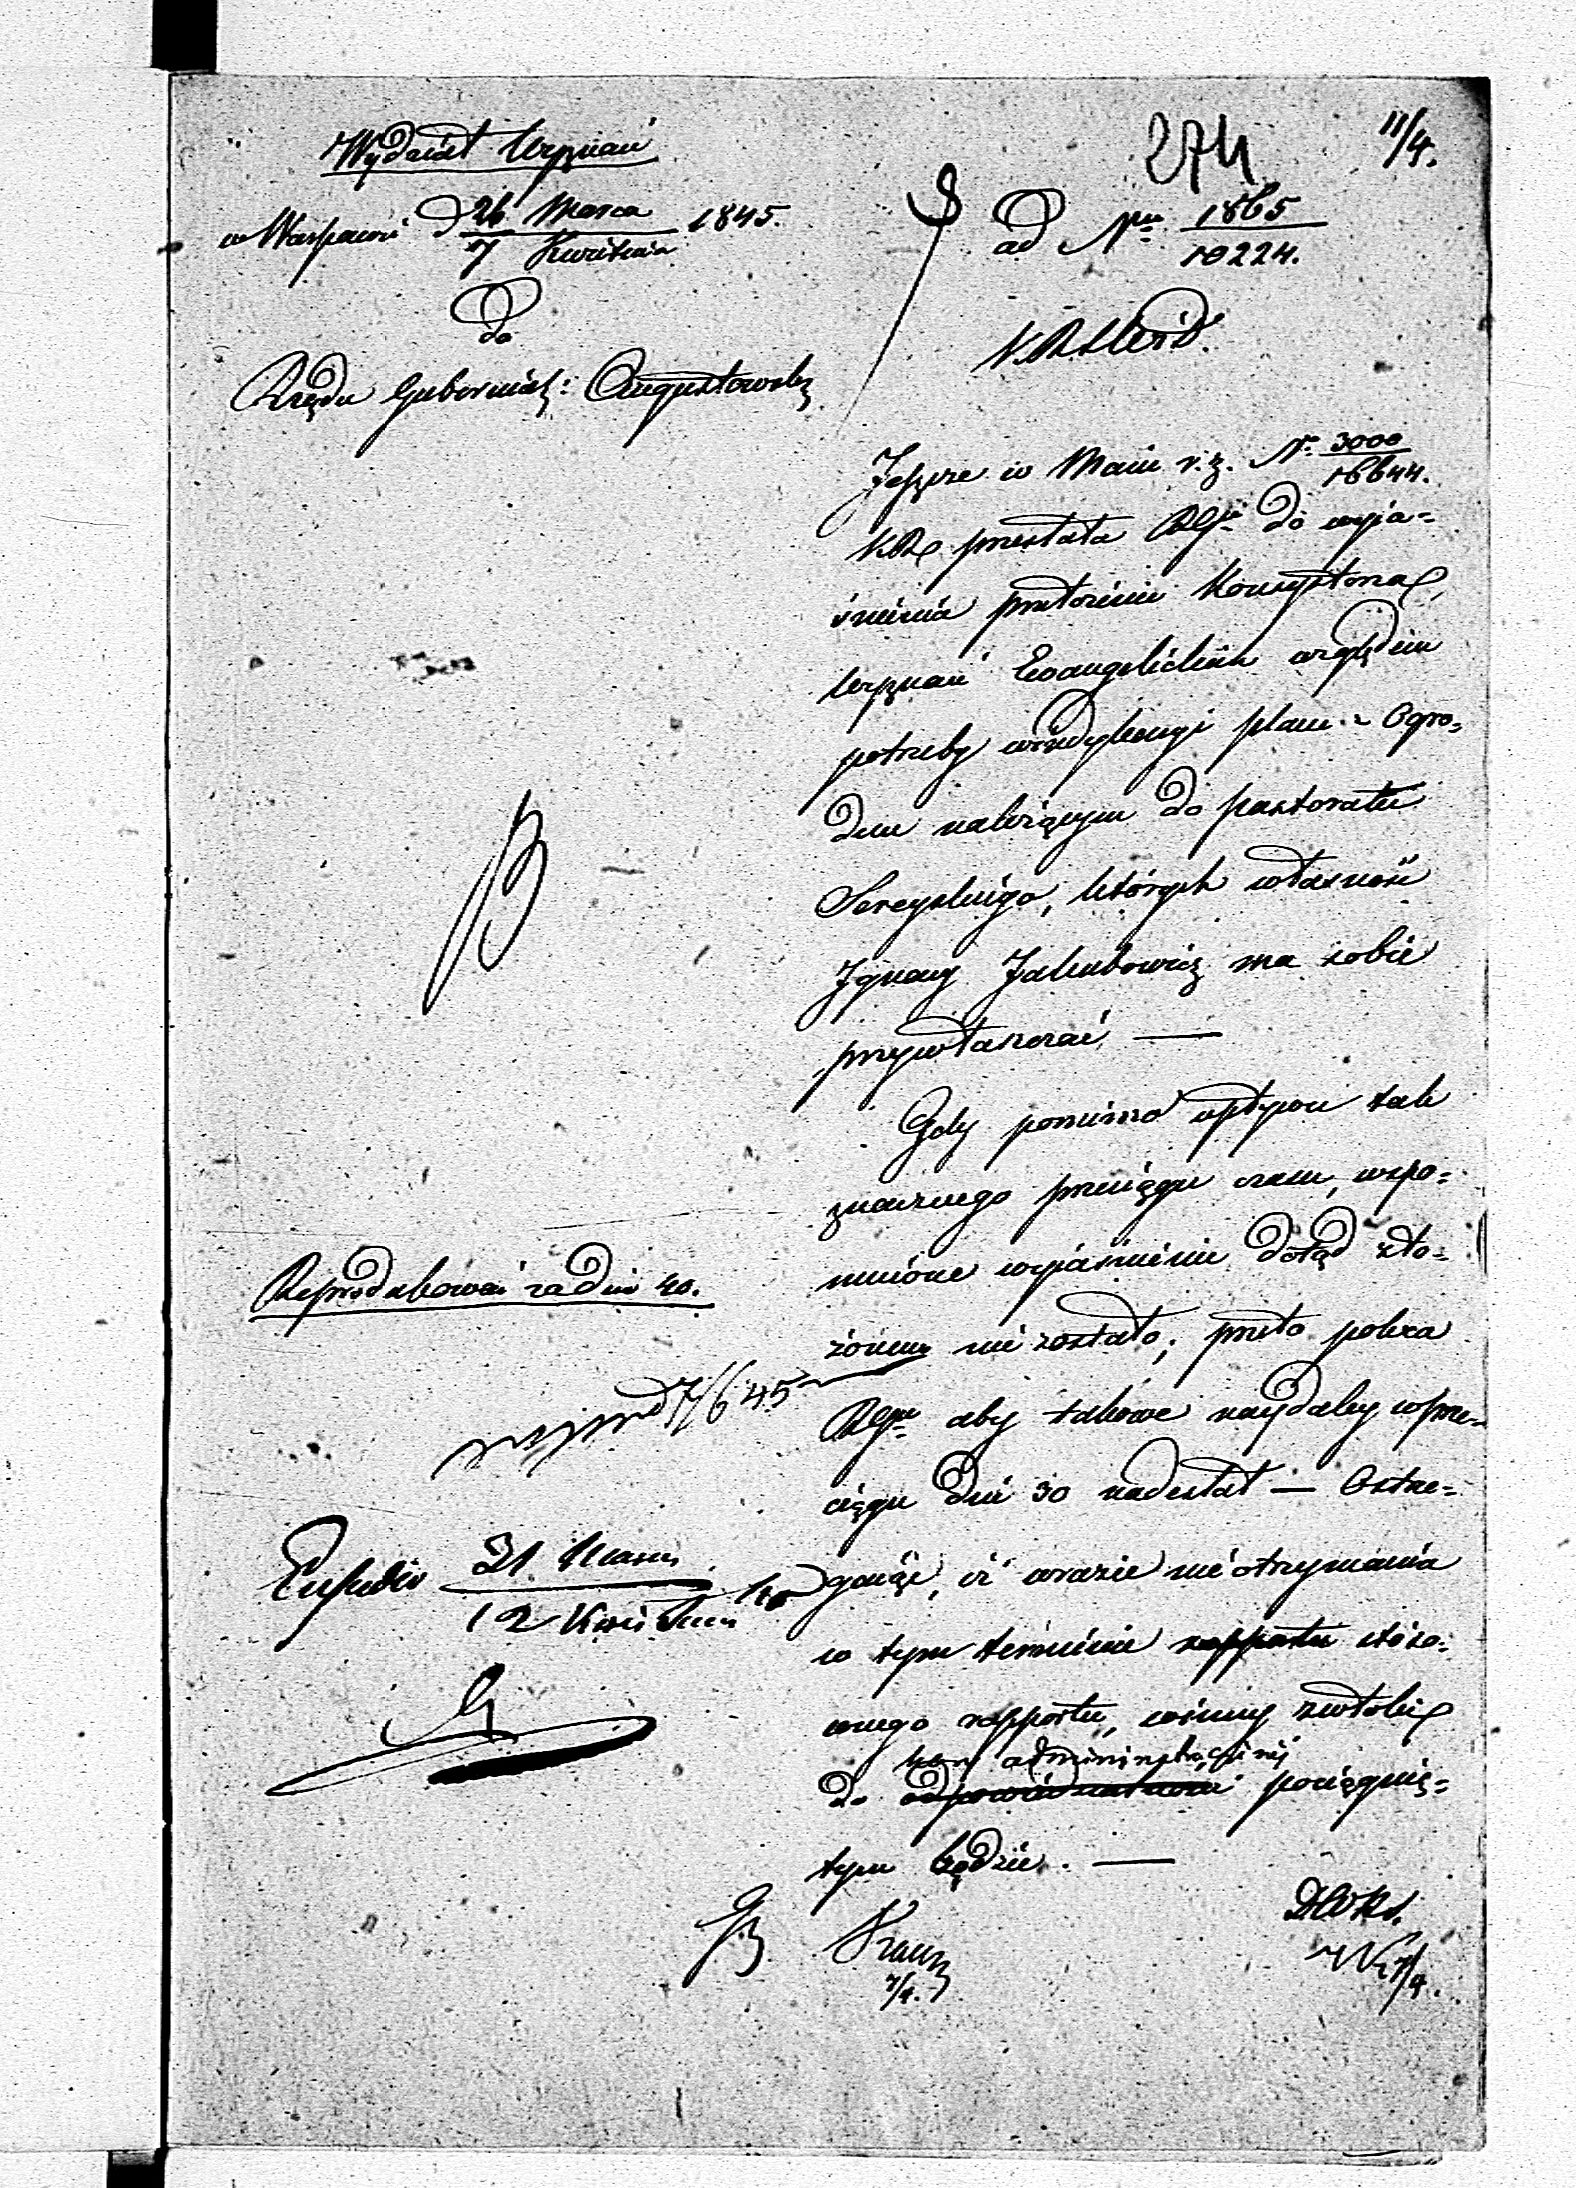 Wydział Wyznań
w Warszawie d 26 Marca / 7 Kwietnia 1845.
do
Rządu Gubernial: Augustowsk
274
11/4.
ad Nru 1865 / 10224.
Jeszcze w Maiu r. z. Nr. 3000 / 16644.
KR przesłała RGu do wyja=
śnienia przełożenie Konsystorza
Wyznań Ewangelickich względem
potrzeby windykacyi placu i Ogro=
du należącym do pastoratu
Sereyskiego, których własność
Ignacy Jakubowicz ma sobie
przywłaszczać —
Gdy pomimo upływu tak
znacznego przeciągu czasu, wspo=
mnione wyjaśnienie dotąd zło=
żonem nie zostało; przeto poleca
RGu aby takowe naydaley w prze=
ciągu dni 30 nadesłał — Ostrze=
gaiąc, iż w razie nieotrzymania
w tym terminie rapportu stóso=
wnego rapportu, winny zwłoki
kary administracyinej
do odpowiedzialności pociągnię=
tym będzie. —
Reprodukować za dni 40.
7/6 45
Expedio 31 Marca / 12 Kwietnia
7/4.